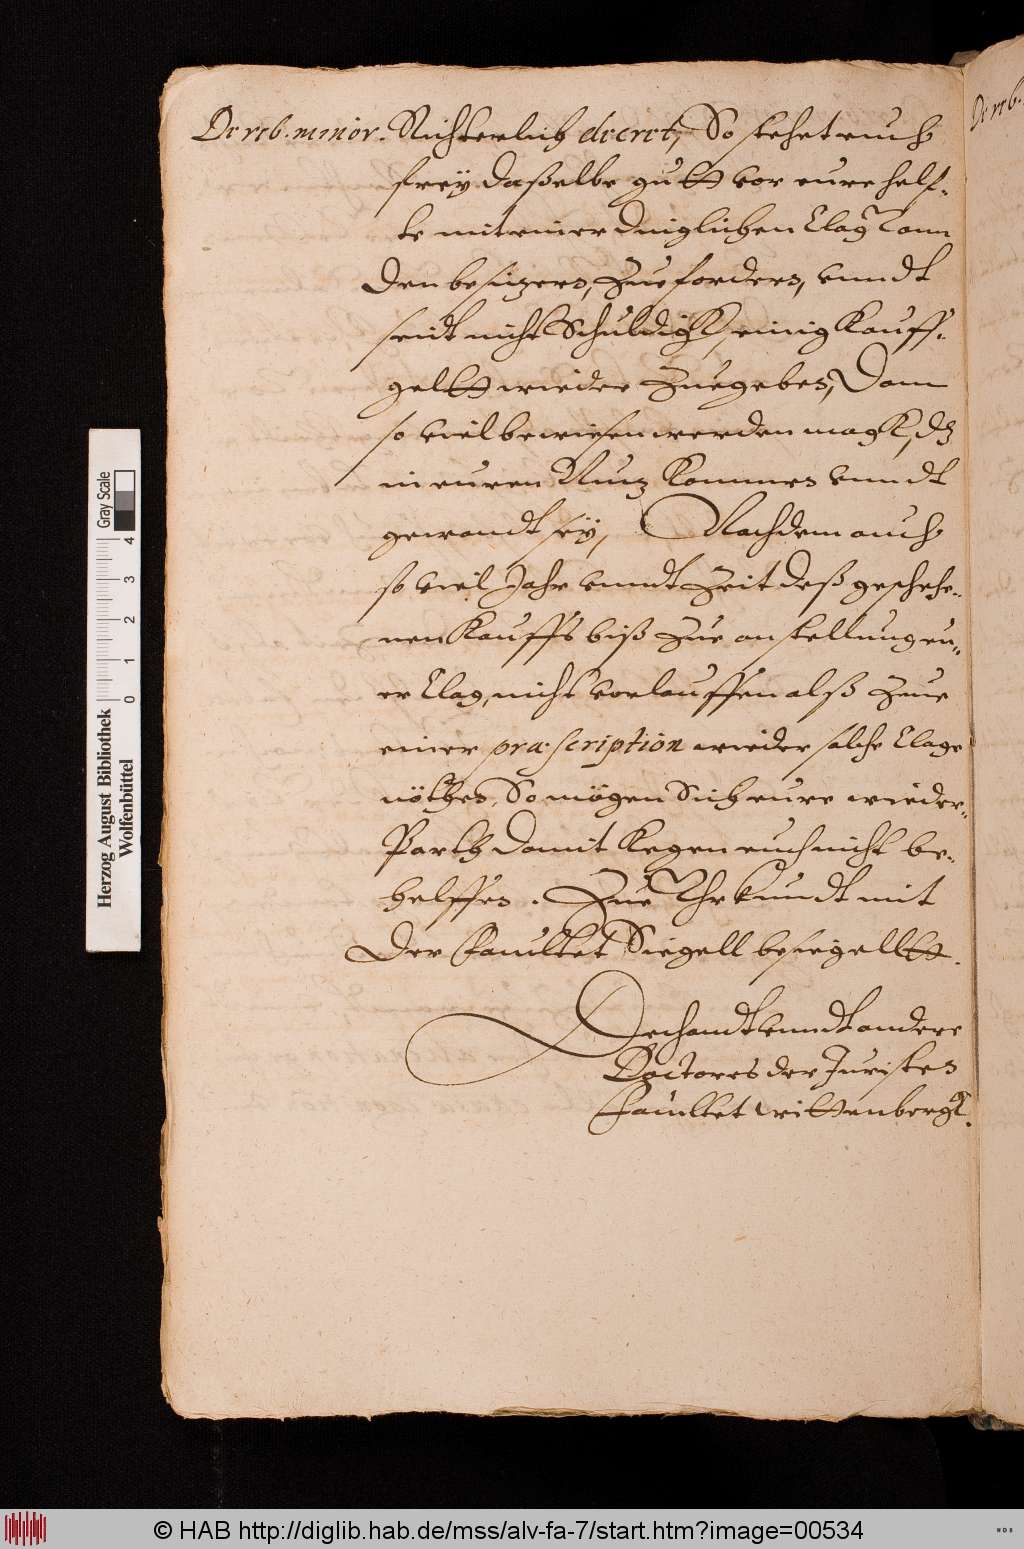 De reb. minor. Richterlich decret, So stehet euch
frey daßelbe gutt vor eure helf-
te mit einer dinglichen Clag von
den besitzern, Zue fordern, vnndt
seidt nicht Schuldigk, einig Kauff-
geltt wieder Zuegeben, Dann
so viel bewiesen werden magk, dz
in euren Nutz kommen vnndt
gewandt sey, Nachdem auch
so viel Jahr vnndt Zeit deß geschehe-
nen Kauffs biß Zue anstellung eu-
er Clag, nicht vorlauffen alß Zue
einer præscription wieder solche Clage
nöthen, So mögen Sich eure wieder-
Parth damit kegen euch nicht be-
helffen. Zue Vhrkundt mit
der Facultet Siegell besiegeltt.
Dechandt vnndt andere
Doctores der Juristen
Facultet Wittenbergk.
De reb.
Herzog August Bibliothek
Wolfenbüttel
0 1 2 3 4
Gray Scale
© HAB http://diglib.hab.de/mss/alv-fa-7/start.htm?image=00534